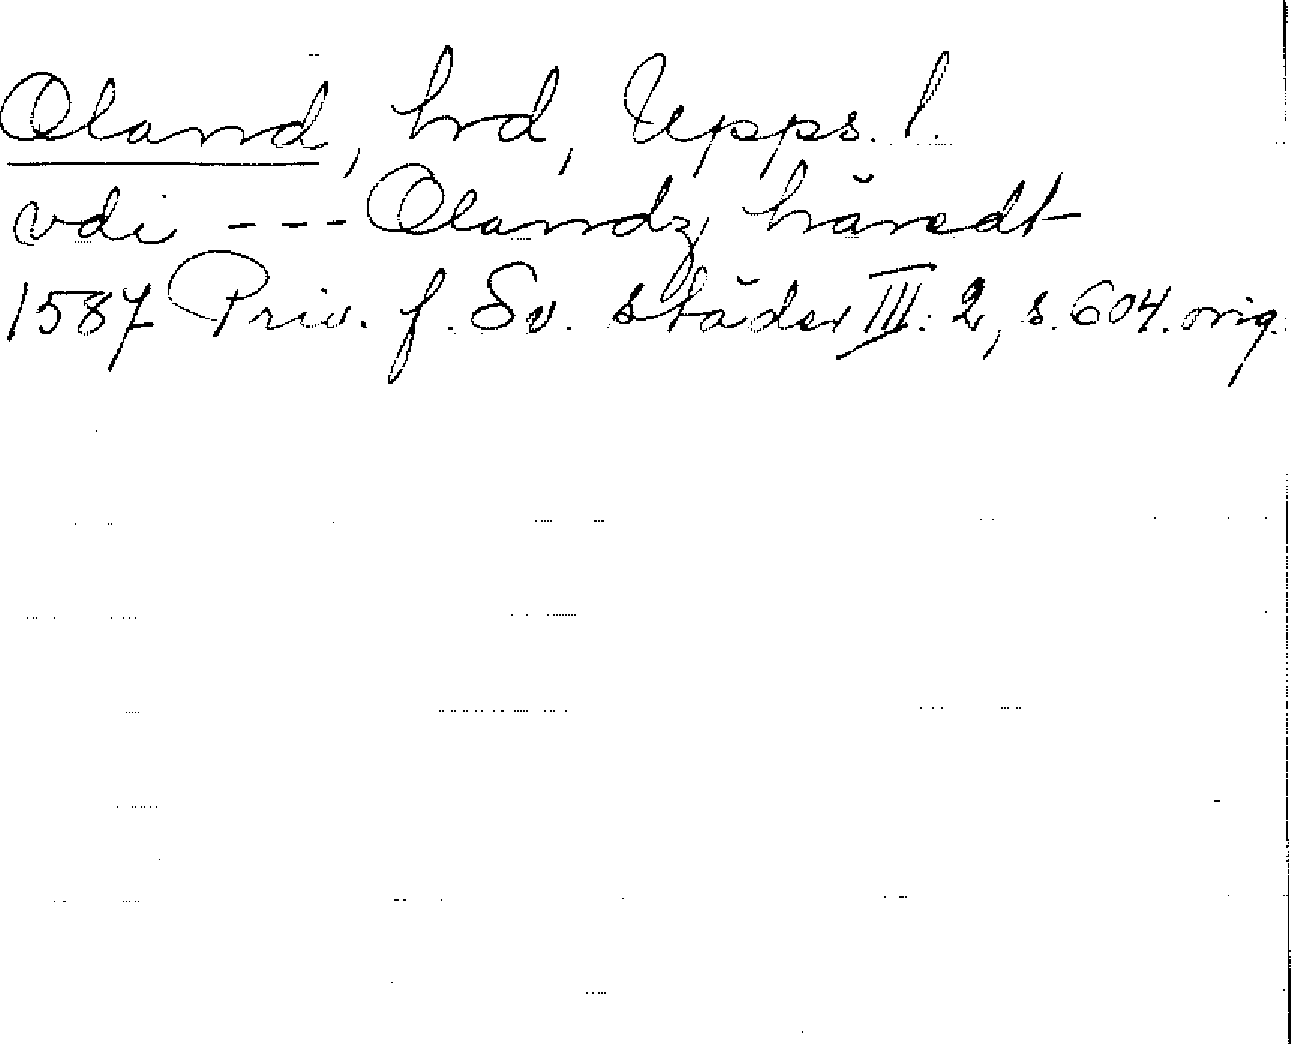 Oland, hrd, Upps. l.
vdi --- Olandz häredt
1587 Priv. f. Sv. städer III: 2, s. 604. orig.